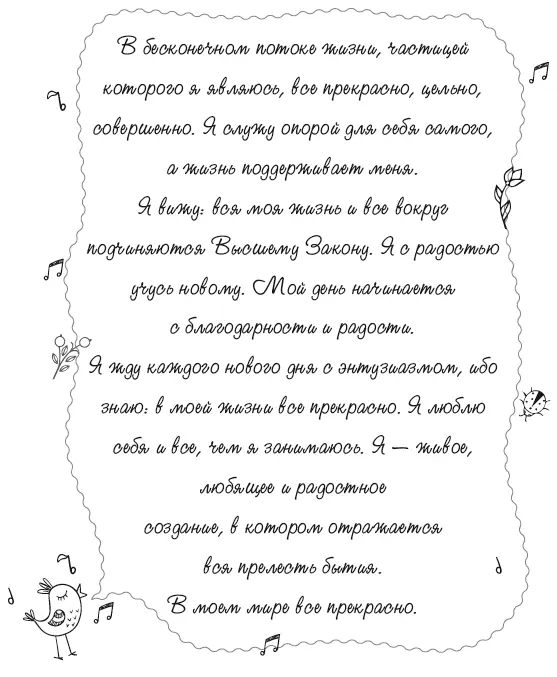 В бесконечном потоке жизни, частицей
которого я являюсь, все прекрасно, цельно,
совершенно. Я служу опорой для себя самого,
а жизнь поддерживает меня.
Я вижу: вся моя жизнь и все вокруг
подчиняются Высшему Закону. Я с радостью
учусь новому. Мой день начинается
с благодарности и радости.
Я жду каждого нового дня с энтузиазмом, ибо
знаю: в моей жизни все прекрасно. Я люблю
себя и все, чем я занимаюсь. Я — живое,
любящее и радостное
создание, в котором отражается
вся прелесть бытия.
В моем мире все прекрасно.